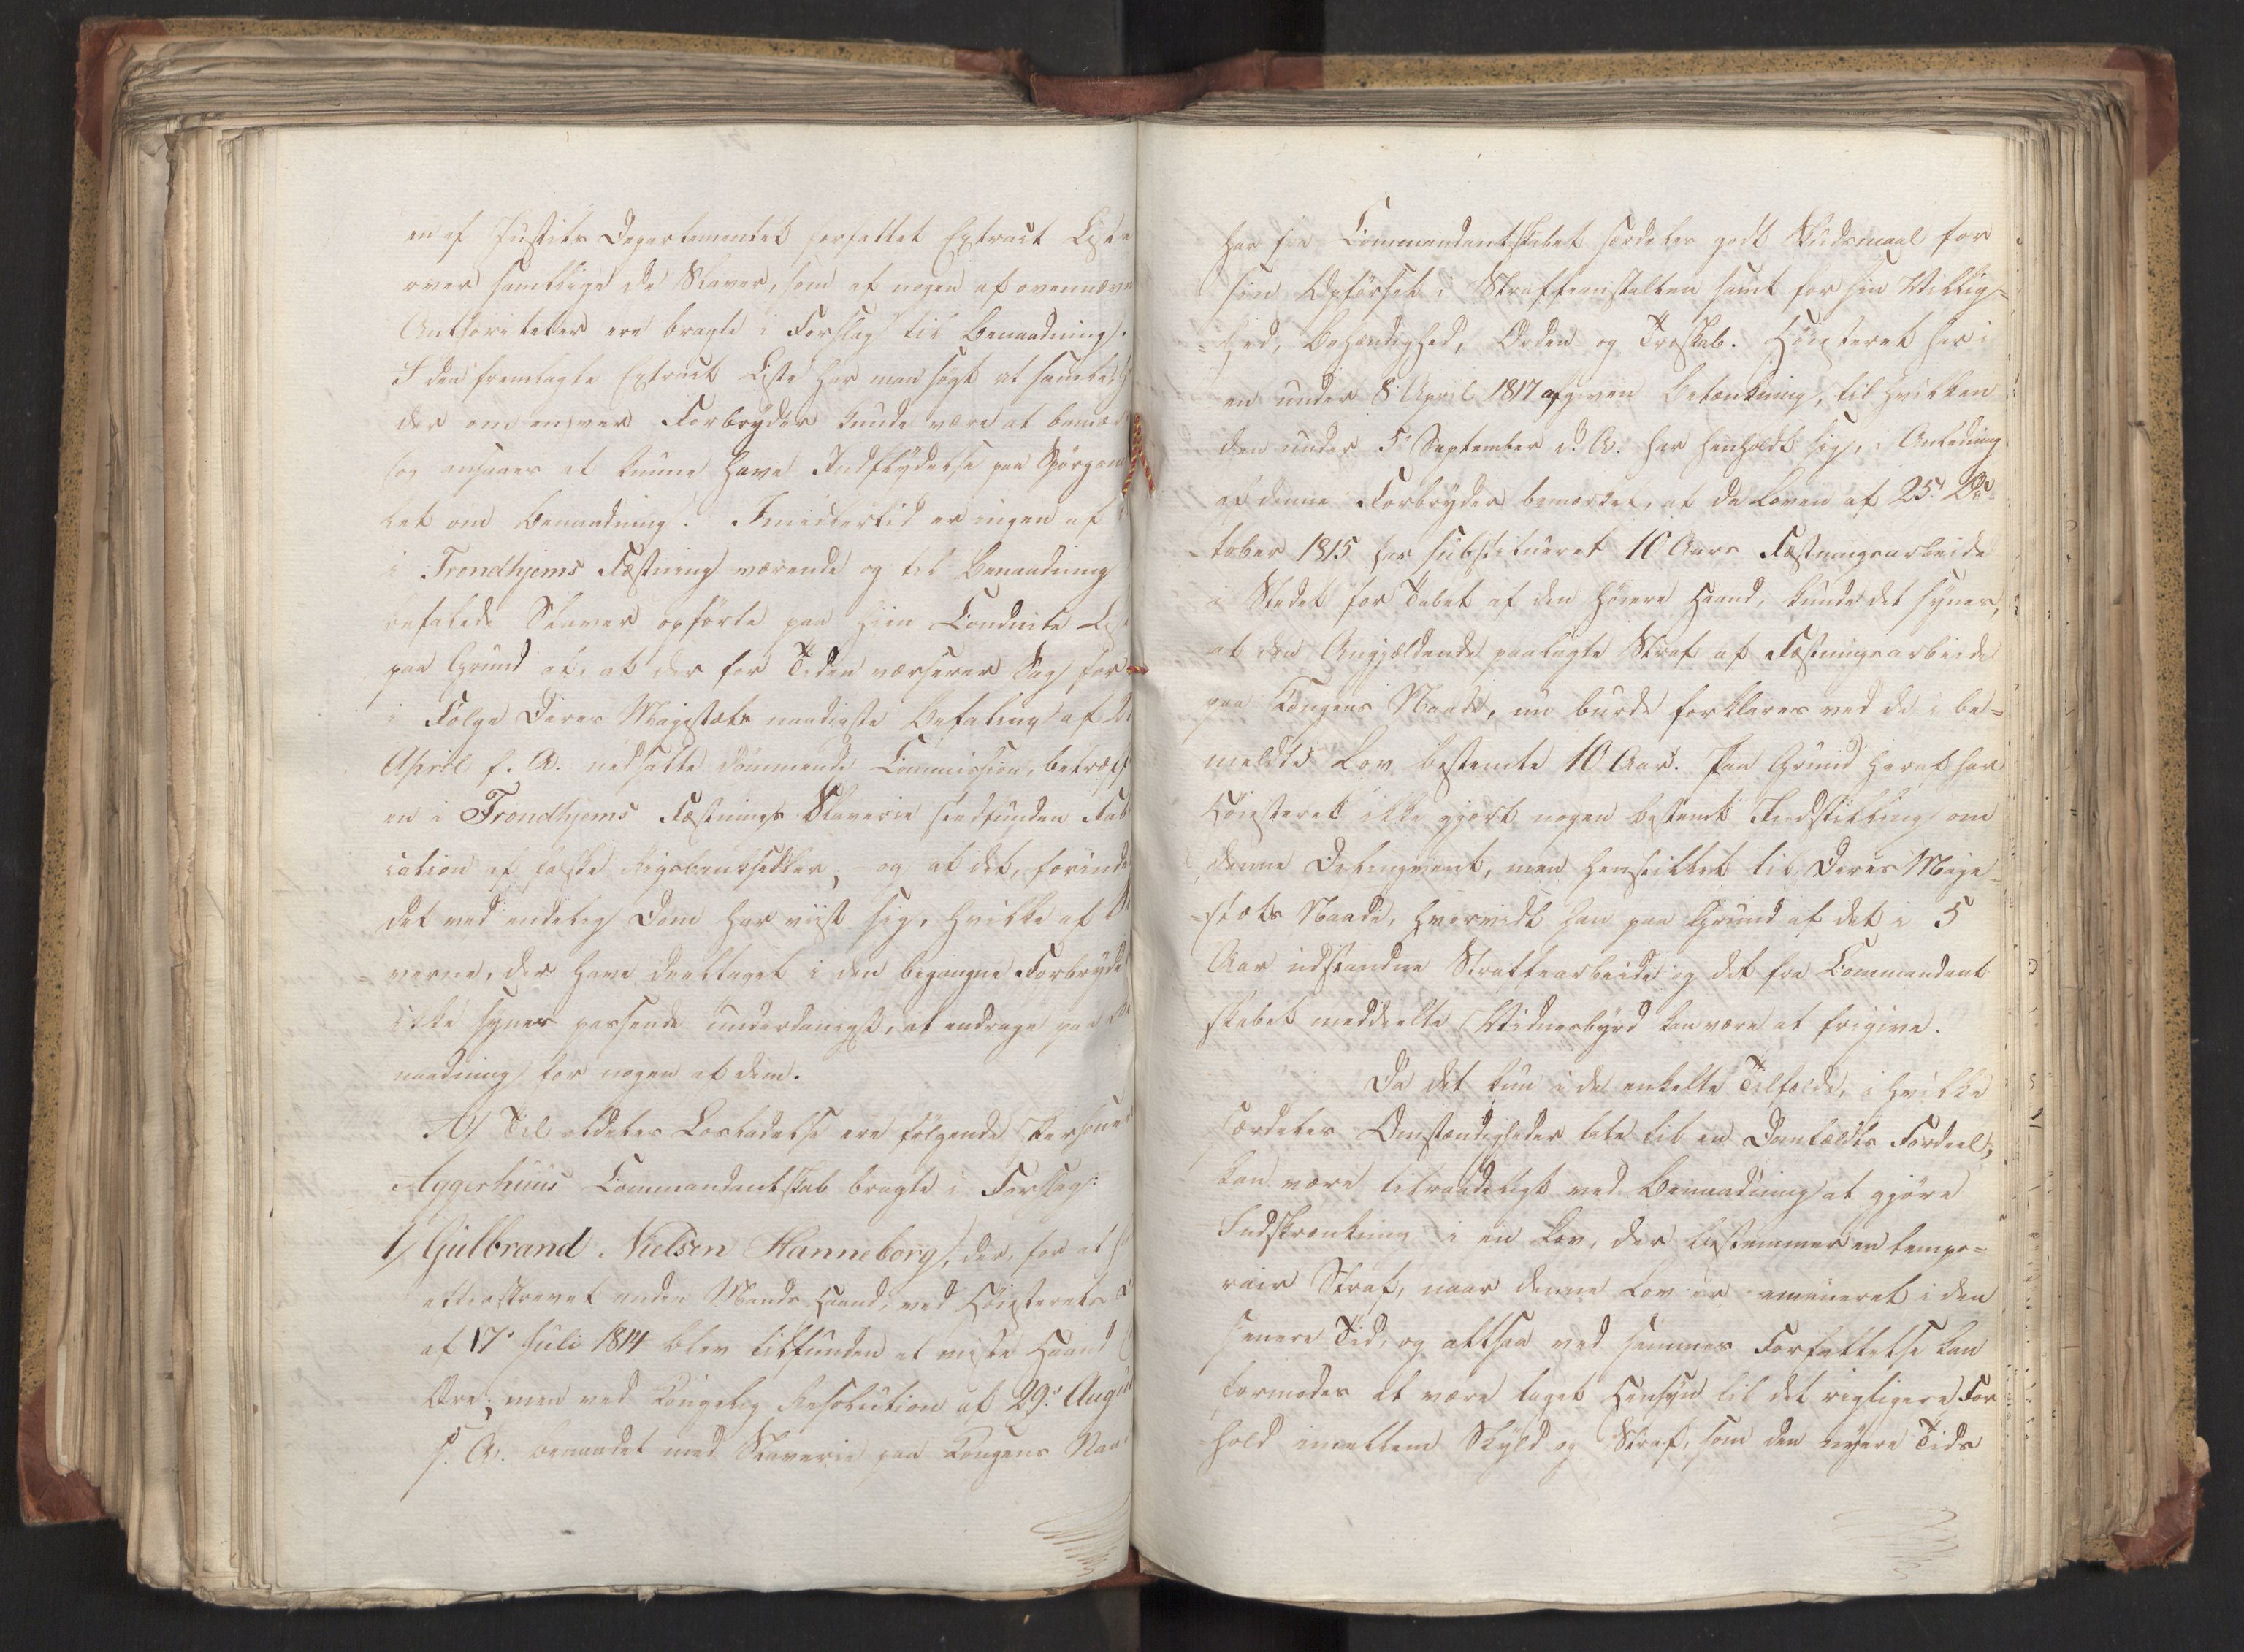 en af Justits Departementet forfattet Extract Liste
over samtlige de Slaver, som af nogen af ovennævn
Authoriteter ere bragte i Forslag til Benaadning.
I den fremlagte Extract Liste har man søgt at samle,
der om enhver Forbryder kunde være at bemær
og ansees at kunne have Indflydelse paa Spørgsm
let om Benaadning. Imidlertid er ingen af
i Trondhjems Fæstning værende og til Benaadning
befalede Slaver opførte paa hiin Conduite Liste
paa Grund af, at der for Tiden værserer Sag for
i Følge Deres Majestæts naadigste Befaling af
April f. A. nedsatte dømmende Commission, betræff
en i Trondhjems Fæstnings Slaverie stedfunden Fab
ication af falske Rigsbanksedler; og at det, forinde
det ved endelig Dom har viist sig, hvilke af
verne, der have deeltaget i den begangne Forbryde
ikke synes passende underdanigst, at andrage paa
naadning for nogen af dem.
A/ Til aldeles Losladelse ere følgende Person
Aggershuus Commandantskab bragte i Forslag:
1/ Gulbrand Nielsen Hanneborg, der, for at
efterskrevet anden Mands Haand, ved Høiesterets
af 17de Juli 1814 blev tilfunden at miste Haand
Ære; men ved Kongelig Resolution af 29de Aug
s. A. benaadet med Slaverie paa Kongens Naa
har fra Commandantskabet særdeles godt Skudsmaal for
sin Opførsel i Straffeanstalten samt for sin Villig=
=hed, Behændighed, Orden og Troskab. Høiesteret har i
en under 8de April 1817 afgiven Betænkning, til hvilken
den under 5te September d. A. har henholdt sig, i Anledning
af denne Forbryder bemærket, at da Loven af 25de Oc=
tober 1815 har substitueret 10 Aars Fæstningsarbeide
i Stedet for Tabet af den høiere Haand, kunde det synes,
at den Angjældende paalagte Straf af Fæstningsarbeide
paa Kongens Naade, nu burde forklares ved de i be=
meldte Lov bestemte 10 Aar. Paa Grund heraf har
Høiesteret ikke gjort nogen bestemt Indstilling om
denne Delinqvent, men henstillet til Deres Maje
=stæts Naade, hvorvidt han paa Grund af det i 5
Aar udstandne Straffearbeide og det fra Commandant
skabet meddeelte Vidnesbyrd kan være at frigive.
Da det kun i de enkelte Tilfælde, i hvilke
særdeles Omstændigheder tale til en Domfældts Fordeel,
kan være tilraadeligt ved Benaadning at gjøre
Indskrænkning i en Lov, der bestemmer en tempo=
rair Straf, naar denne Lov er emaneret i den
senere Tid, og altsaa ved sammes Forfattelse kan
formodes at være taget Hensyn til det rigtigere For
hold imellem Skyld og Straf, som den nyere Tids